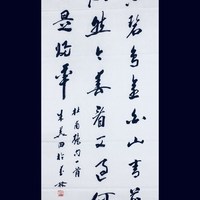 碧鸟逾白山青花
欲然今春看又過何
是歸年
杜甫絶句一首